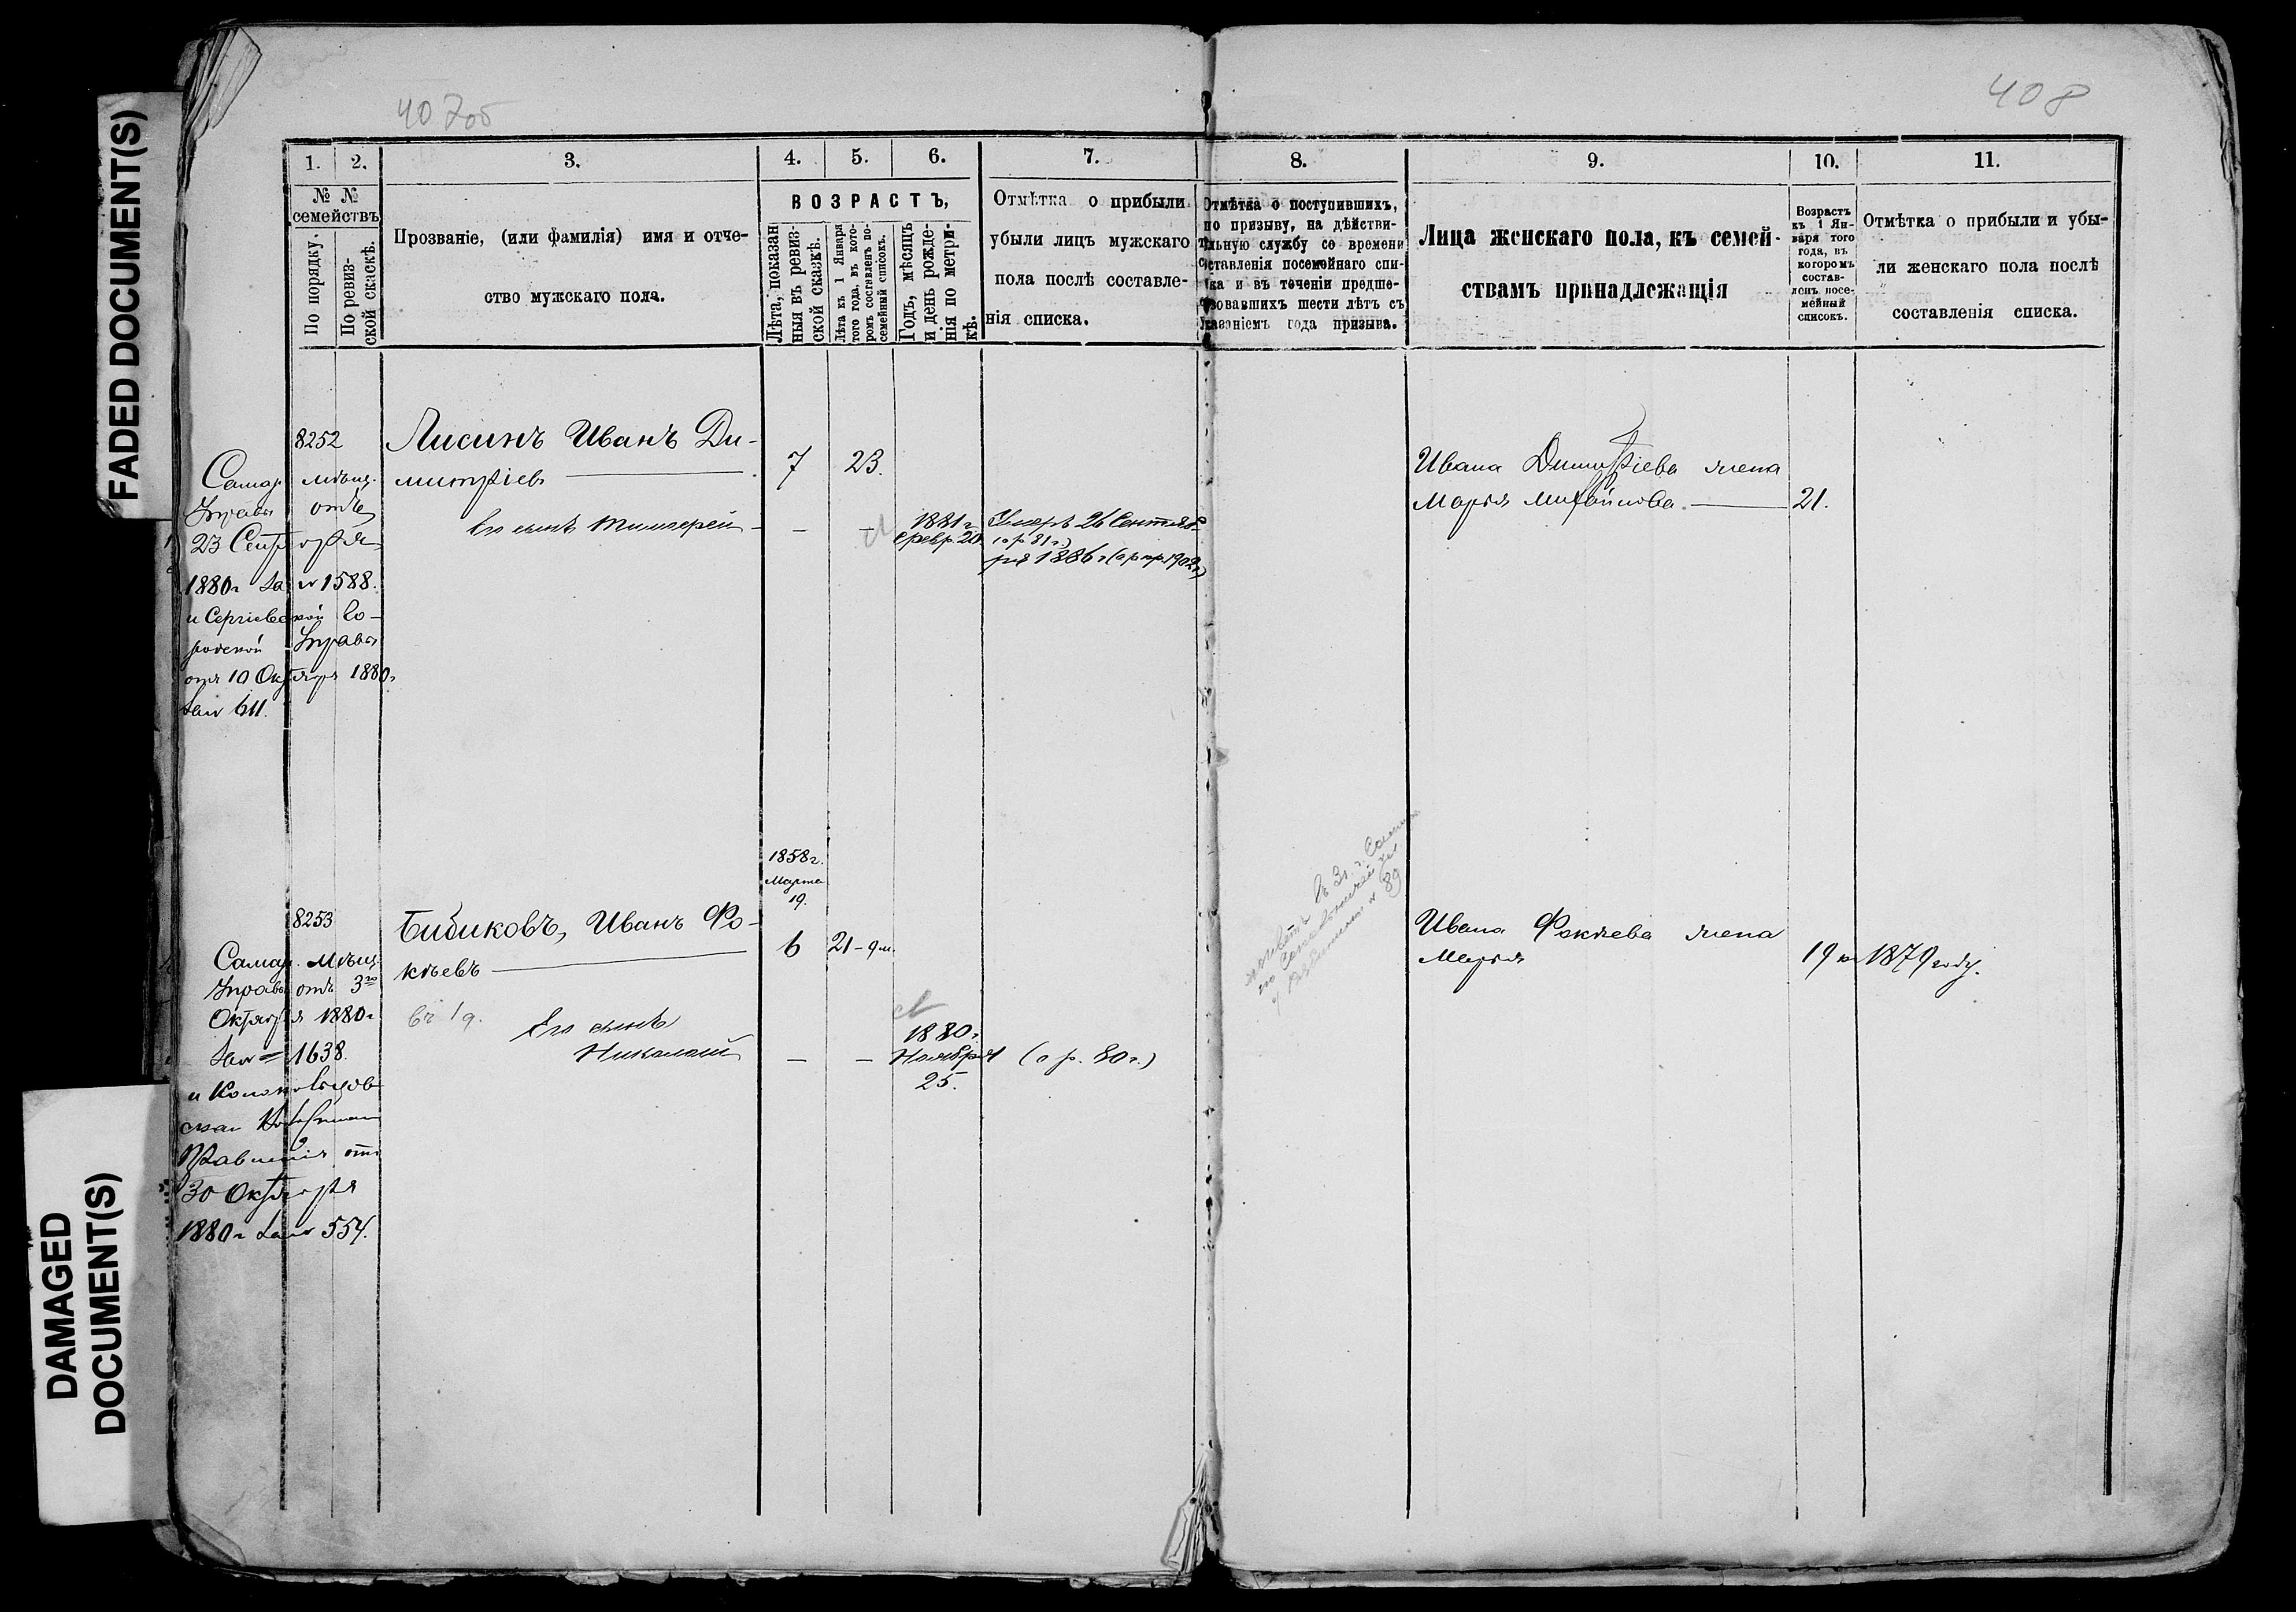 FADED DOCUMENT(S)
DAMAGED
DOCUMENT(S)
407об
408
1.
2.
3.
4.
5.
6.
7.
8.
9.
10.
11.
№ №
семействъ
По порядку.
По ревиз-
ской скаскѣ.
Прозваніе, (или фамилія) имя и отче-
ство мужскаго пола.
ВОЗРАСТЪ,
Лѣта, показан
ныя въ ревиз-
ской сказкѣ.
Лѣта къ 1 Января
того года, въ кото-
ромъ составленъ по-
семейный списокъ.
Годъ, мѣсяцъ
и день рожде-
нія по метри-
кѣ.
Отмѣтка о прибыли
убыли лицъ мужскаго
пола послѣ составле-
нія списка.
Отмѣтка о поступившихъ,
по призыву, на дѣйстви-
тельную службу со времени
составленія посемейнаго спи-
ска и въ теченіи предше-
ствовавшихъ шести лѣтъ съ
указаніемъ года призыва.
Лица женскаго пола, къ семей-
ствамъ принадлежащія
Возрастъ
къ 1 Ян-
варя того
года, въ
которомъ
состав-
ленъ посе-
мейный
списокъ.
Отмѣтка о прибыли и убы-
ли женскаго пола послѣ
составленія списка.
8252
Самар. мѣщ.
Управы отъ
23 Сентября
1880 г за № 1588.
и Сергіевской Го-
родской Управы
отъ 10 Октября 1880 г
за № 611.
Лисинъ Иванъ Ди-
митріевъ
7
23.
Его сынъ Тимофей
—
—
1881 г
Февр. 20
Умеръ 26 Сентяб-
(о р 81 г.)
ря 1886 г (о р пр 1902 г)
Ивана Димитріева жена
Марья Михайлова.
21.
8253
Самар. Мѣщ.
Управы отъ 3го
Октября 1880 г
за № 1638.
Правленія отъ
30 Октября
1880 г за № 554.
1858 г.
Марта
19.
Бибиковъ, Иванъ Фо-
кѣевъ
6
21 - 9 м
Его сынъ
Николай
—
—
1880 г.
Ноября
25.
(о р. 80 г.)
89
Ивана Фокѣева жена
Марья
19 въ 1879 году.